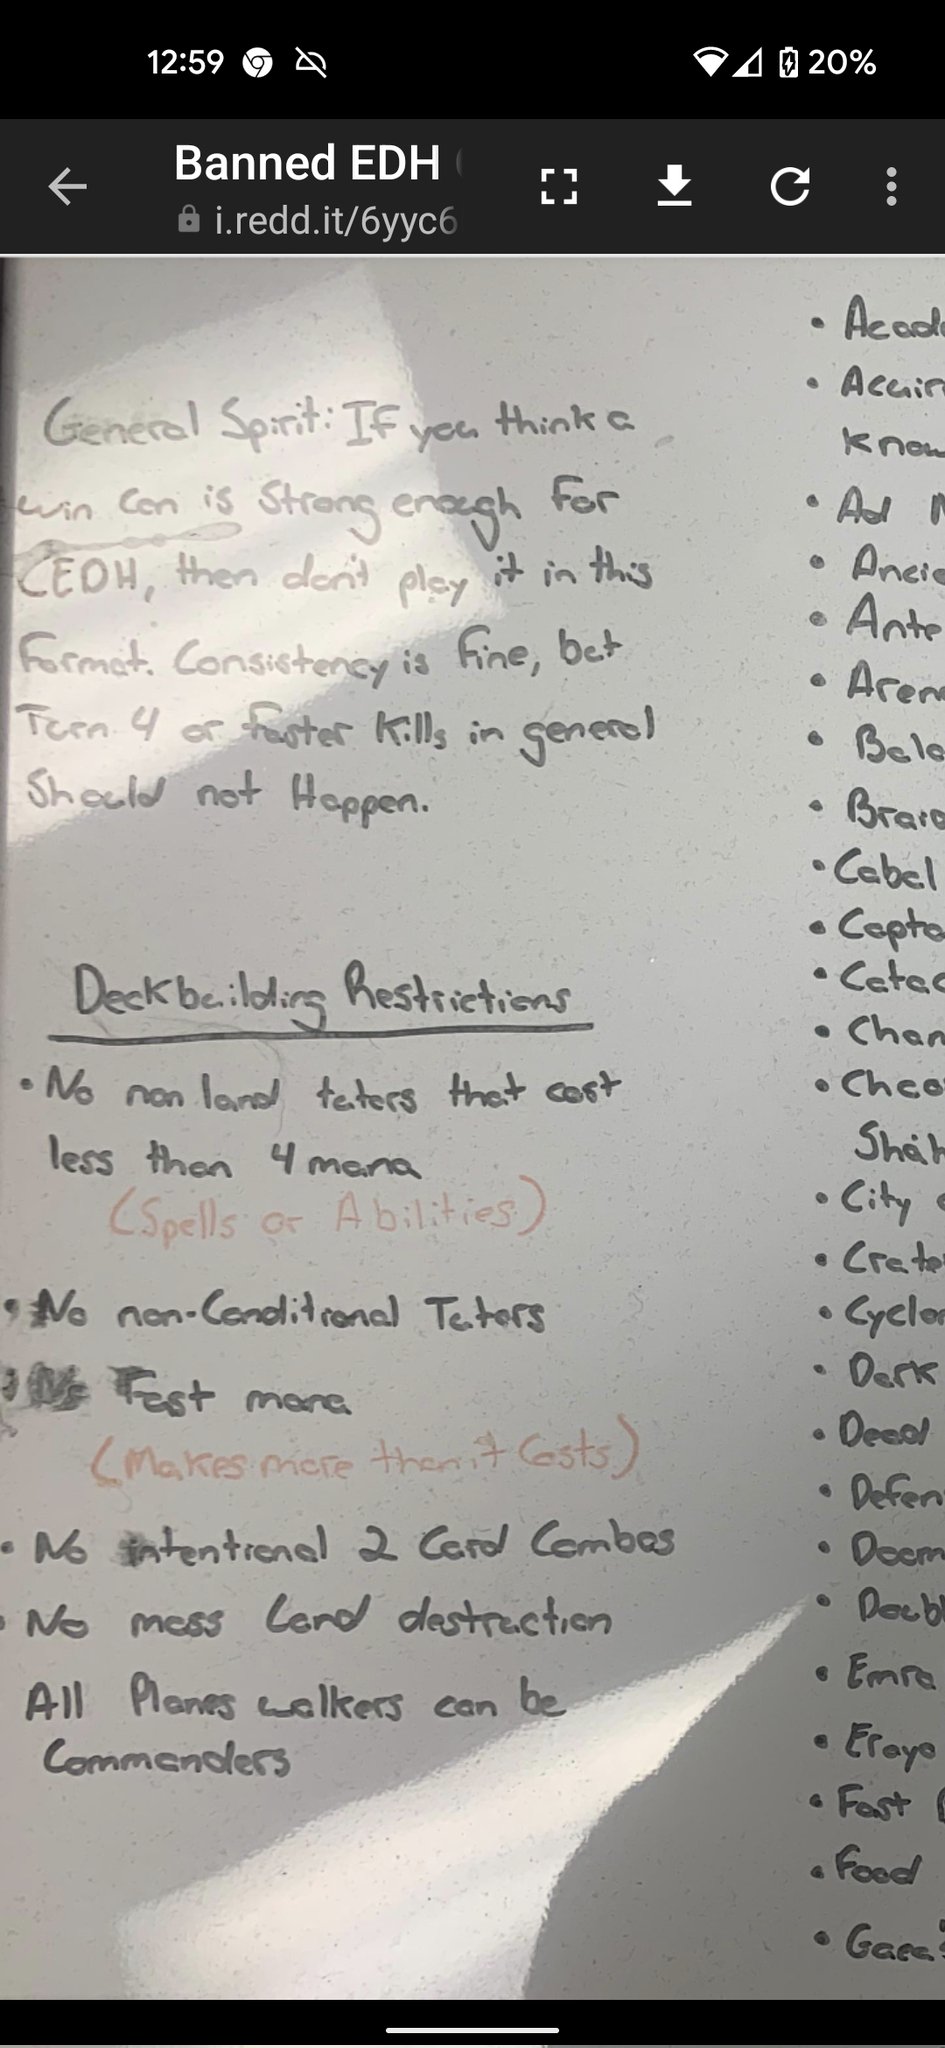 12:59
20%
Banned EDH
i.redd.it/6yyc6
General Spirit: If you think a
win con is Strong enough for
CEDH, then don't play it in this
Format. Consistency is fine, but
Turn 4 or faster Kills in general
Should not Happen.
Deckbuilding Restrictions
• No non land tutors that cost
less than 4 mana
(Spells or Abilities)
• No non-Conditional Tutors
• No Fast mana
(Makes more than it Costs)
• No intentional 2 Card Combos
• No mass Land destruction
All Planes walkers can be
Commanders
• Acad
• Ad N
• Ancie
• Ante
• Aren
• Bala
• Braid
• Cabal
• Capta
• Catac
• Chan
• Chao
Shah
• City
• Crate
• Cyclon
• Dark
• Dead
• Defen
• Doom
• Doub
• Emra
• Erayo
• Fast
• Food
• Gaea's